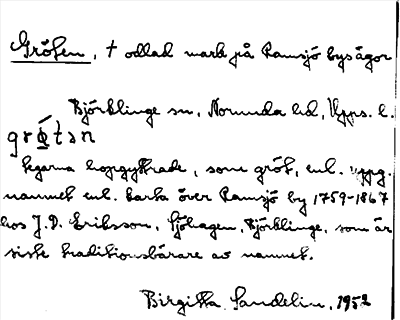 Gröten, † odlad mark på Ramsjö bysägor
Björklinge sn, Norunda hd, Upps. l.
grø̀tən
Tegarna hopgyttrade, som gröt, enl. uppg.
namnet enl. karta över Ramsjö by 1759-1867
hos J.D. Eriksson, Sjöhagen, Björklinge, som är
siste traditionsbärare av namnet.
Birgitta Sandelin, 1952